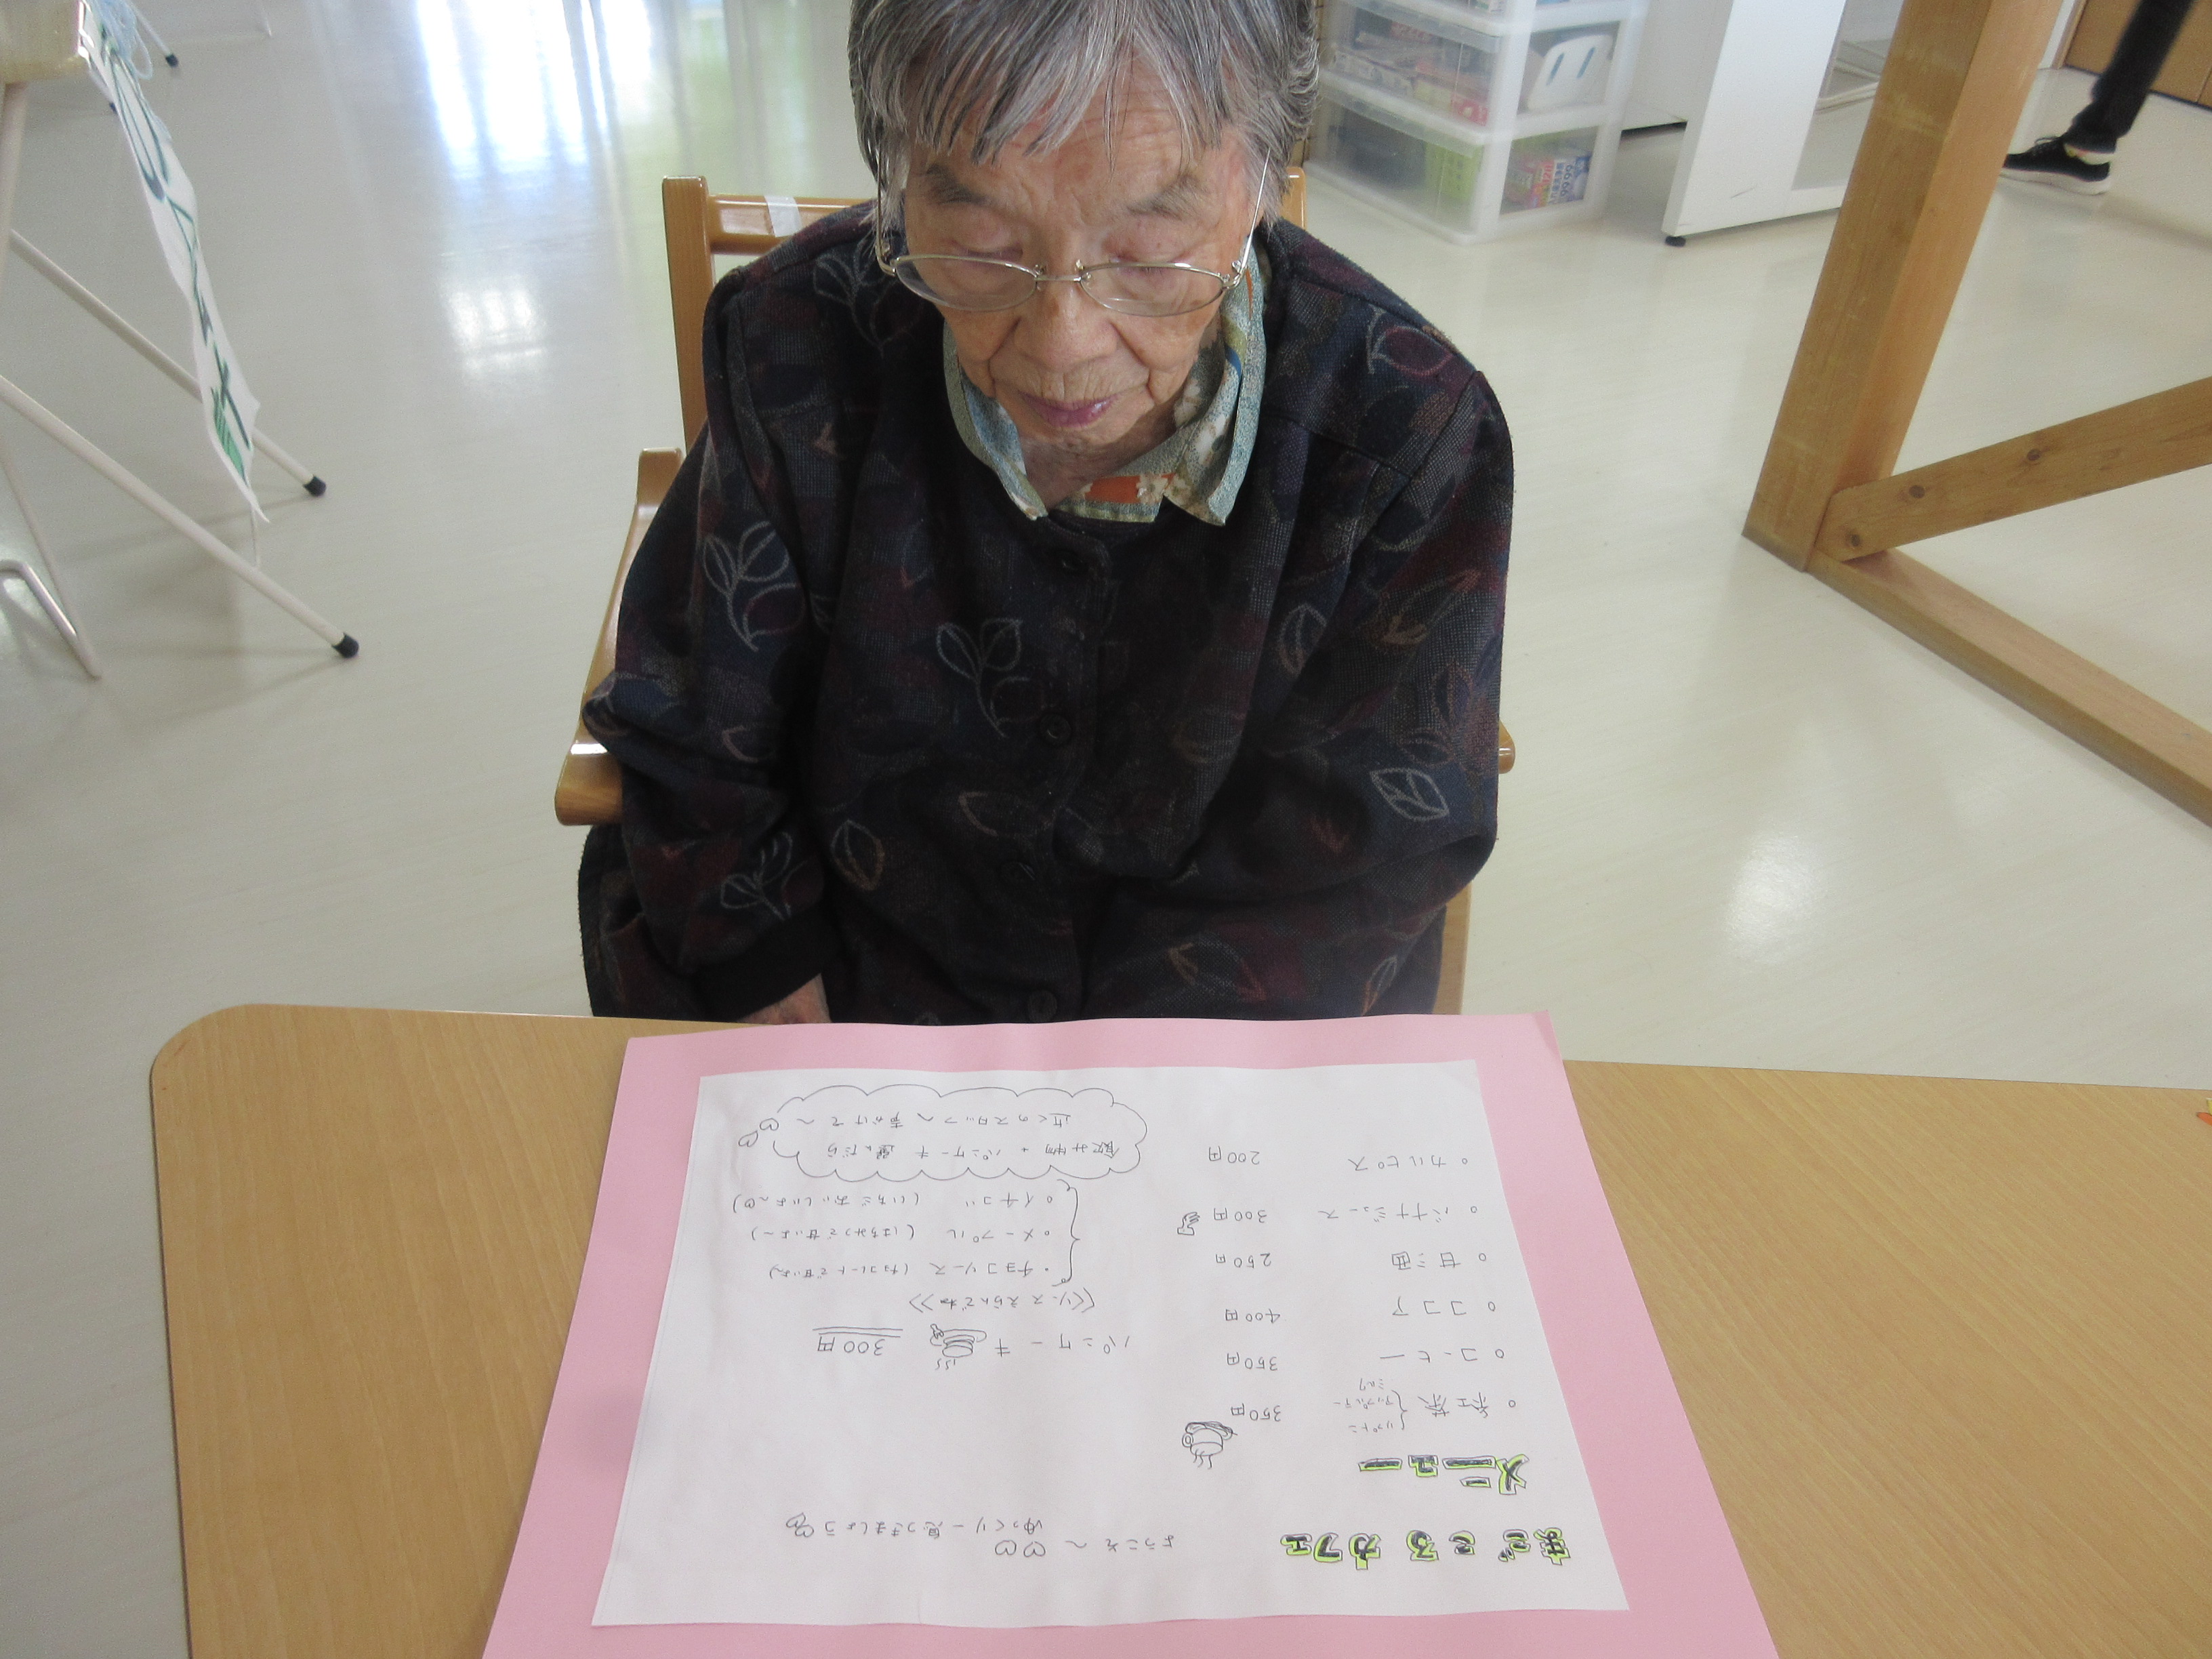 まごころカフェ
ようこそ〜♡♡
ゆっくり一息つきましょう♡
メニュー
◦紅茶 リプトン アップルティー ミルク 350円
◦コーヒー 350円
◦ココア 400円
◦甘酒 250円
◦バナナジュース 300円
◦カルピス 200円
パンケーキ 300円
《ソースえらんでね》
・チョコソース (チョコレートで甘いよ)
◦メープル (はちみつで甘いよ〜)
◦イチゴ (いちごおいしいよ〜♡)
飲み物+パンケーキ選んだら
近くのスタッフへ声かけて〜